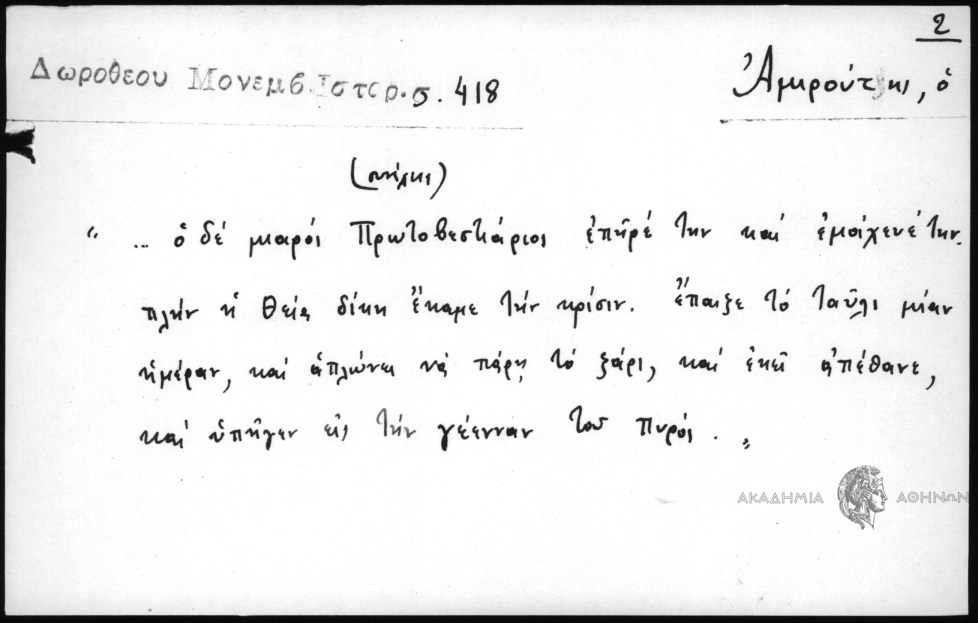 2
Δωροθεου Μονεμβ. Ιστορ. σ. 418
Ἀμιρούτζης, ὁ
“ ... ὁ δέ μιαρός Πρωτοβεστιάριος ἐπῆρέ την καί ἐμοίχενέ την.
πλήν ἡ θεία δίκη ἔκαμε τήν κρίσιν. ἔπαιξε τό ταῦλι μίαν
ἡμέραν, καί ἁπλώνει νά πάρῃ τό ζάρι, καί ἐκεῖ ἀπέθανε,
καί ὑπῆγεν εἰς τήν γέενναν τοῦ πυρός. „
ΑΚΑΔΗΜΙΑ ΑΘΗΝΩΝ